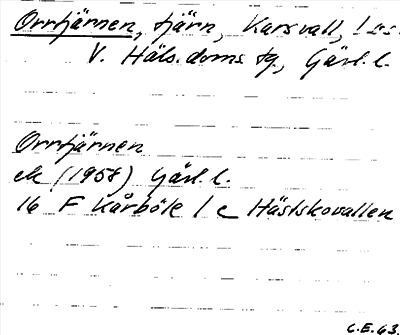 Orrtjärnen, tjärn, Karsvall, Los
V. Häls. doms. tg., Gävl. l.
Orrtjärnen
ek (1958) Gävl. l.
16 F Kårböle 1 c Hästskovallen
C.E. 63.